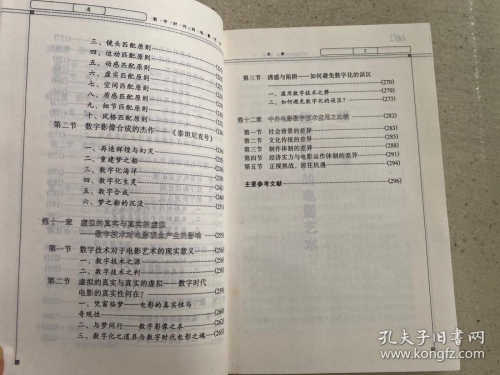 三、镜头匹配原则
四、运动匹配原则
五、动感匹配原则
六、虚实匹配原则
七、空间匹配原则
八、质感匹配原则
九、细节匹配原则
十、风格匹配原则
第二节 数字影像合成的杰作——《泰坦尼克号》
一、再造辉煌与幻灭
二、重建梦之船
三、数字化海洋
四、数字化生灵
五、数字合成
六、梦之船的沉没
第十一章 虚拟的真实与真实的虚拟
——数字技术对电影观念产生的影响
第一节 数字技术对于电影艺术的现实意义
一、数字技术之源
二、数字技术之利
第二节 虚拟的真实与真实的虚拟——数字时代
电影的真实性何在？
一、凭窗临梦——电影的真实性与
奇观性
二、与梦同行——数字影像之本
三、数字化之道具与数字时代电影之魂 (265)
第三节 诱惑与陷阱——如何避免数字化的误区
(270)
一、滥用数字技术之弊 (270)
二、如何避免数字化的误区？ (273)
第十二章 中外电影数字技术应用之比较 (282)
第一节 社会背景的差异 (283)
第二节 文化传统的差异 (285)
第三节 制作体制的差异 (289)
第四节 经济实力与电影运作体制的差异 (291)
第五节 正视挑战，抓住机遇 (294)
主要参考文献 (296)
孔夫子旧书网
www.kongfz.com